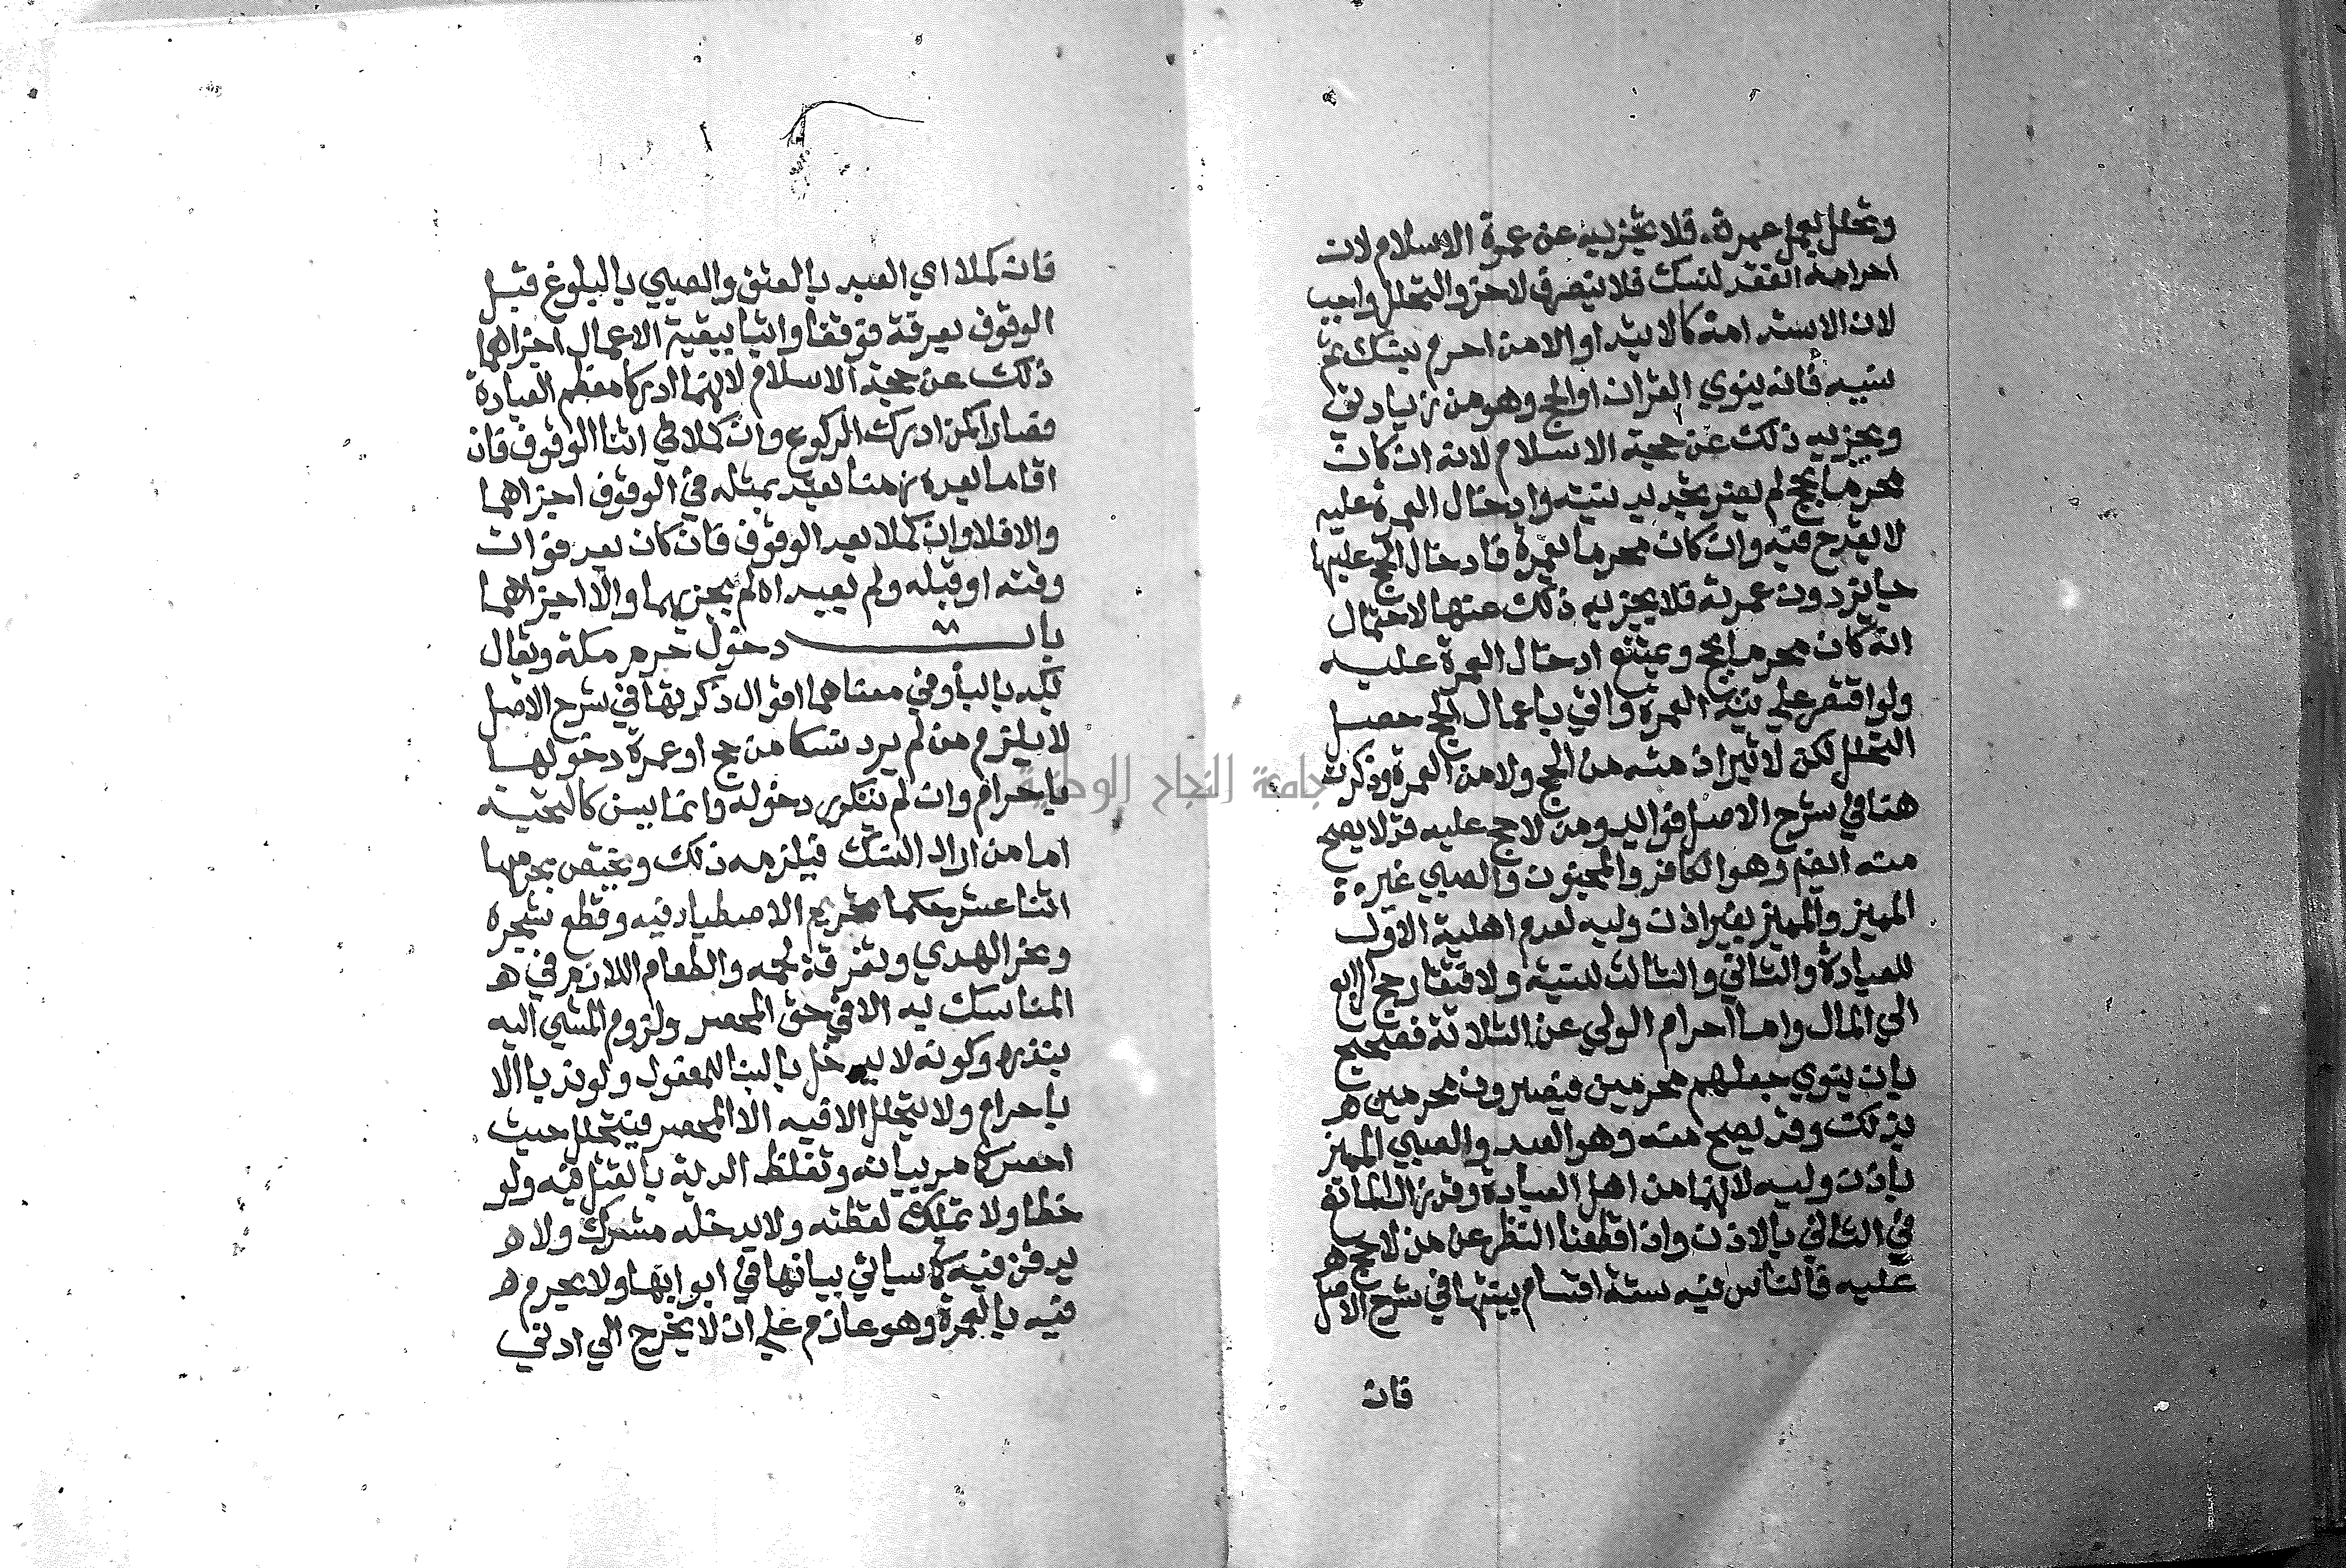 وتحلل بعمل عمرة فلا تجزيه عن عمرة الاسلام لان
احرامه انعقد لنسك فلا ينصرف لاخر والتحلل واجب
لان الاستدامة كالابتداء او الا من احرم بنسك ثم
نسيه فانه ينوي القران او الحج وهو من زيادتي
ويجزيه ذلك عن حجة الاسلام لانه ان كان
محرما بحج لم يضر تجديد نيته وادخال العمرة عليه
لا يقدح فيه وان كان محرما بعمرة فادخال الحج عليها
جايز دون عمرته فلا يجزيه ذلك عنها لاحتمال
انه كان محرما بحج ويمتنع ادخال العمرة عليه
ولو اقتصر علي نية العمرة واتي باعمال الحج حصل
التحلل لكن لا تبرا ذمته من الحج ولا من العمرة وذكرت
هنا في شرح الاصل فوايد ومن لا حج عليه قد لا يصح
منه ايضا وهو الكافر والمجنون والصبي غير
المميز والمميز بغير اذن وليه لعدم اهلية الاول
للعبادة والثاني والثالث للنية ولافتقار حج الرابع
الي المال واما احرام الولي عن الثلاثة فصحيح
بان ينوي جعلهم محرمين فيصيرون محرمين ه
بذلك وقد يصح منه وهو العبد والصبي المميز
باذن وليه لانهما من اهل العبادة وقد زال المانع
في الثاني بالاذن واذا قطعنا النظر عن من لا حج ه
عليه فالناس فيه ستة اقسام بينتها في شرح الاصل
فان
فان كملا اي العبد بالعتق والصبي بالبلوغ قبل
الوقوف بعرفة فوقفا واتيا ببقية الاعمال اجزاهما
ذلك عن حجة الاسلام لانهما ادركا معظم العبادة
فصارا كمن ادرك الركوع وان كملا في اثنا الوقوف فان
اقاما بعده زمنا يعتد بمثله في الوقوف اجزاهما
والا فلا وان كملا بعد الوقوف فان كان بعد فوات
وقته او قبله ولم يعيداه لم يجزيهما والا اجزاهما
باب دخول حرم مكة ويقال
بكة بالبا وفي معناهما اقوال ذكرتها في شرح الاصل
لا يلزم من لم يرد نسكا من حج او عمرة دخولها
باحرام وان لم يتكرر دخوله وانما يسن كالتحية
اما من اراد النسك فيلزمه ذلك ويختص بحرمها
اثنا عشر حكما تحريم الاصطياد فيه وقطع شجره
ونحر الهدي وتفرقة لحمه والطعام اللازم في ه
المناسك به الا في حق المحصر ولزوم المشي اليه
بنذره وكونه لا يدخل بالبنا للمفعول ولو ندبا الا
باحرام ولا يتحلل الا فيه الا المحصر فيتحلل حيث
احصر كما مر بيانه وتغلظ الدية بالقتل فيه ولو
خطا ولا تملك لقطته ولا يدخله مشرك ولا ه
يدفن فيه كما سياتي بيانها في ابوابها ولا يحرم ه
فيه بالعمرة وهو عازم علي ان لا يخرج الي ادني
جامعة النجاح الوطنية